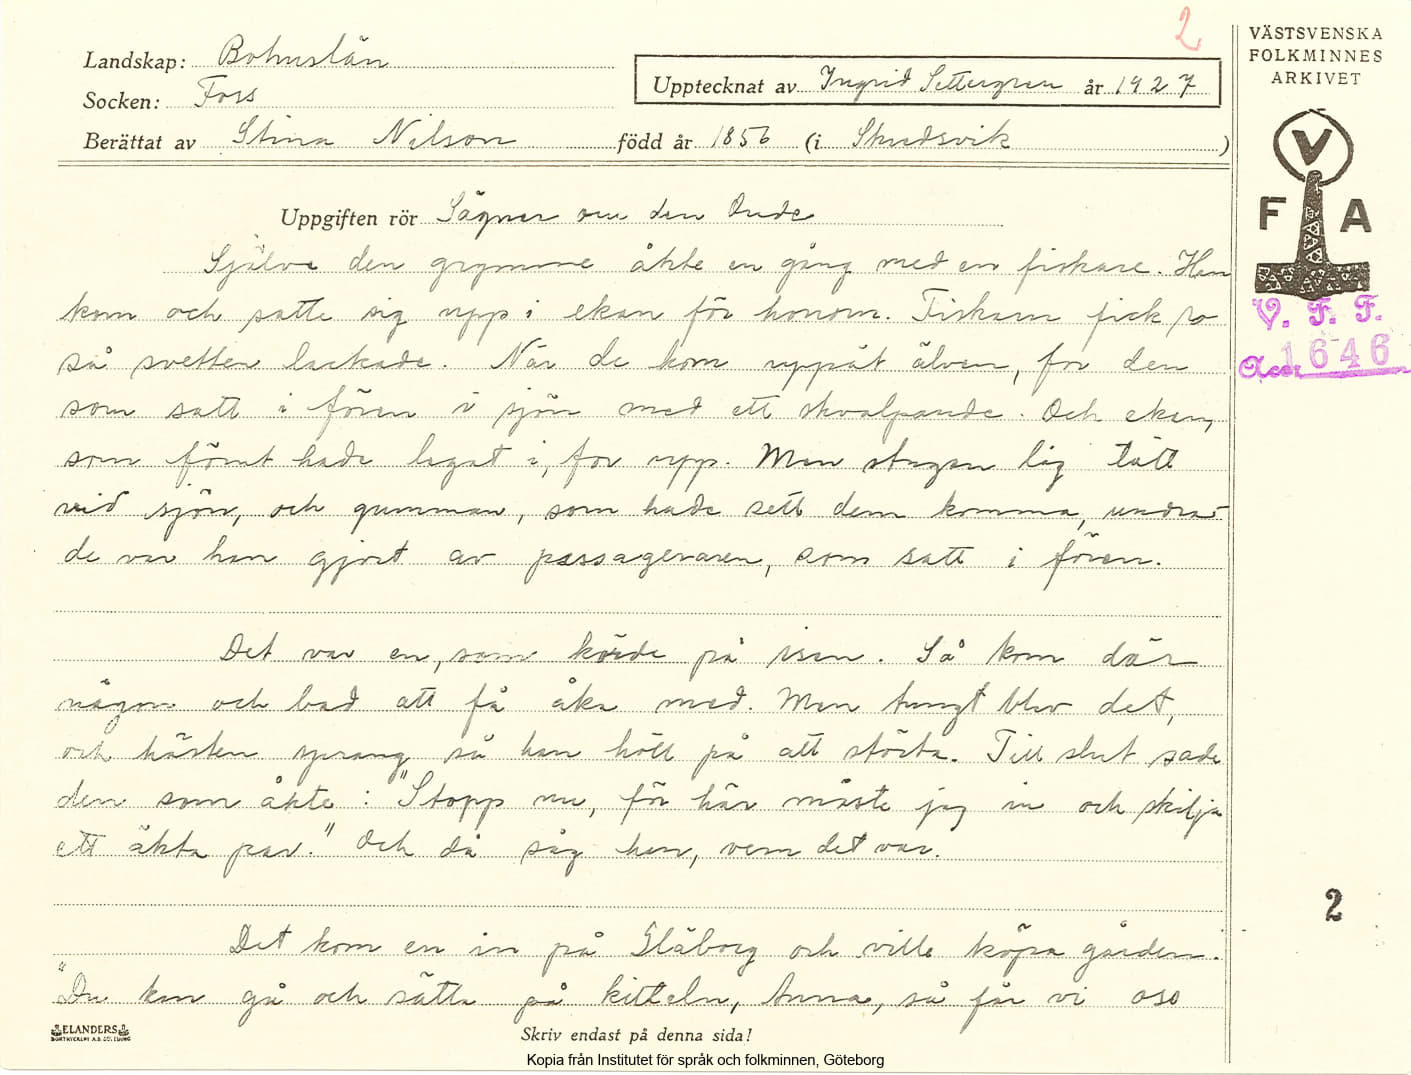 2
Landskap: Bohuslän
Socken: Foss
Berättat av Stina Nilson född år 1856 (i Skredsvik)
Upptecknat av Ingrid Settergren år 1927
VÄSTSVENSKA
FOLKMINNES
ARKIVET
V
F A
V. F. F.
Acc 1646
Uppgiften rör Sägner om den Onde
Själve den grymme åkte en gång med en fiskare. Han
kom och satte sig upp i ekan för honom. Fiskarn fick ro
så svetten lackade. När de kom uppåt älven, for den
som satt i fören i sjön med ett skvalpande. Och ekan,
som förut hade legat i, for upp. Men stugan låg tätt
vid sjön, och gumman, som hade sett dem komma, undra-
de var han gjort av passageraren, som satt i fören.
Det var en, som körde på isen. Så kom där
någon och bad att få åka med. Men tungt blev det,
och hästen sprang så han höll på att störta. Till slut sade
den som åkte: "Stopp nu, för här måste jag in och skilja
ett äkta par." Och då såg han, vem det var.
2
Det kom en in på Glåborg och ville köpa gården.
"Du kan gå och sätta på kitteln, Anna, så får vi oss
ELANDERS
BOKTRYCKERI A.B. GÖTEBORG
Skriv endast på denna sida!
Kopia från Institutet för språk och folkminnen, Göteborg